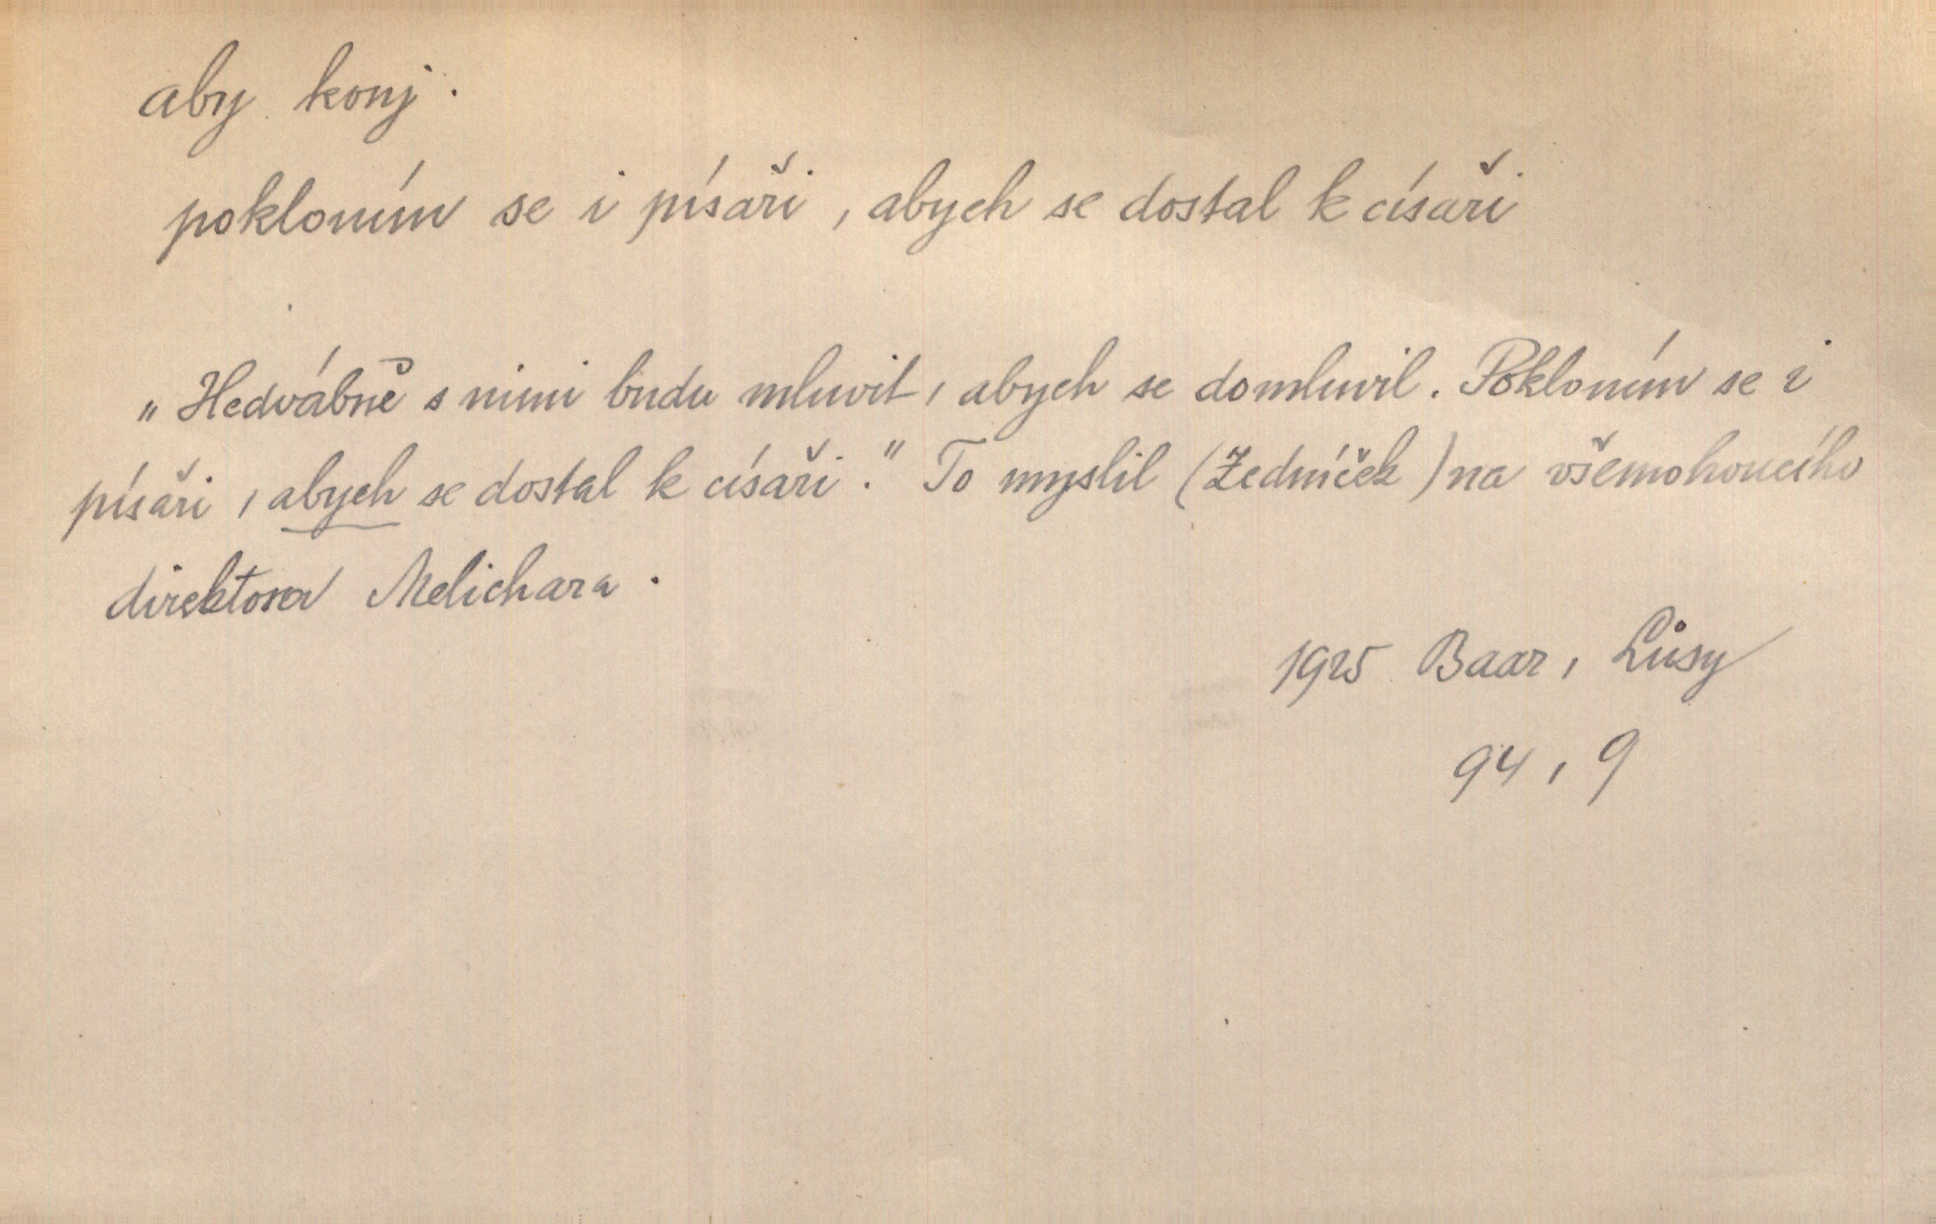 aby konj.
pokloním se i písaři, abych se dostal k císaři
„Hedvábně s nimi budu mluvit, abych se domluvil. Pokloním se i
písaři, abych se dostal k císaři." To myslil (Zedníček) na všemohoucího
direktora Melichara.
1925 Baar, Lůsy
94, 9